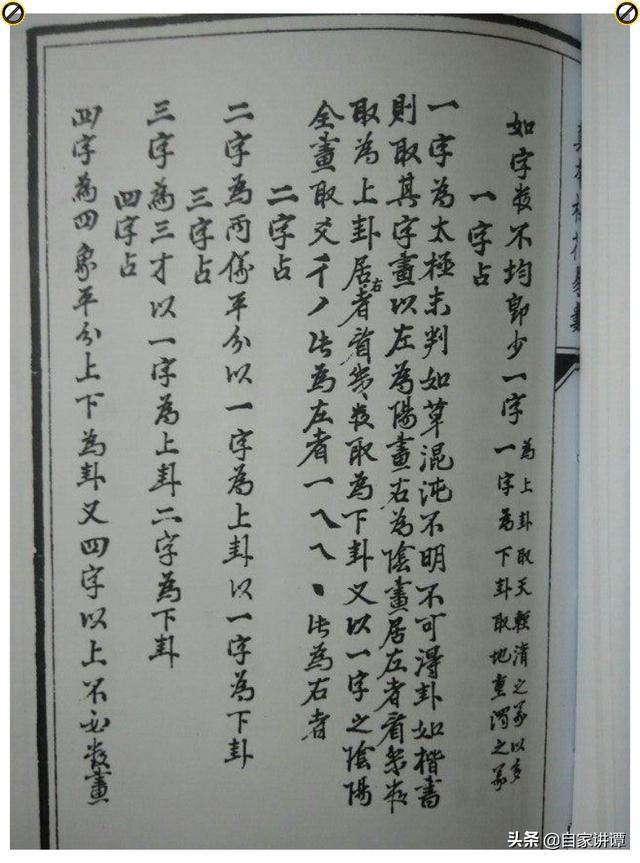 如字数不均即少一字
為上卦取天輕清之象以多
一字為下卦取地重濁之象
一字占
一字為太極未判如草混沌不明不可得卦如楷書
則取其字畫以左為陽畫右為陰畫居左者看幾数
取為上卦居右者看幾数取為下卦又以一字之陰陽
全畫取爻彳丿此為左者一乀乀丶此為右者
二字占
二字為兩儀平分以一字為上卦以一字為下卦
三字占
三字為三才以一字為上卦二字為下卦
四字占
四字為四象平分上下為卦又四字以上不必数畫
头条 @自家讲谭